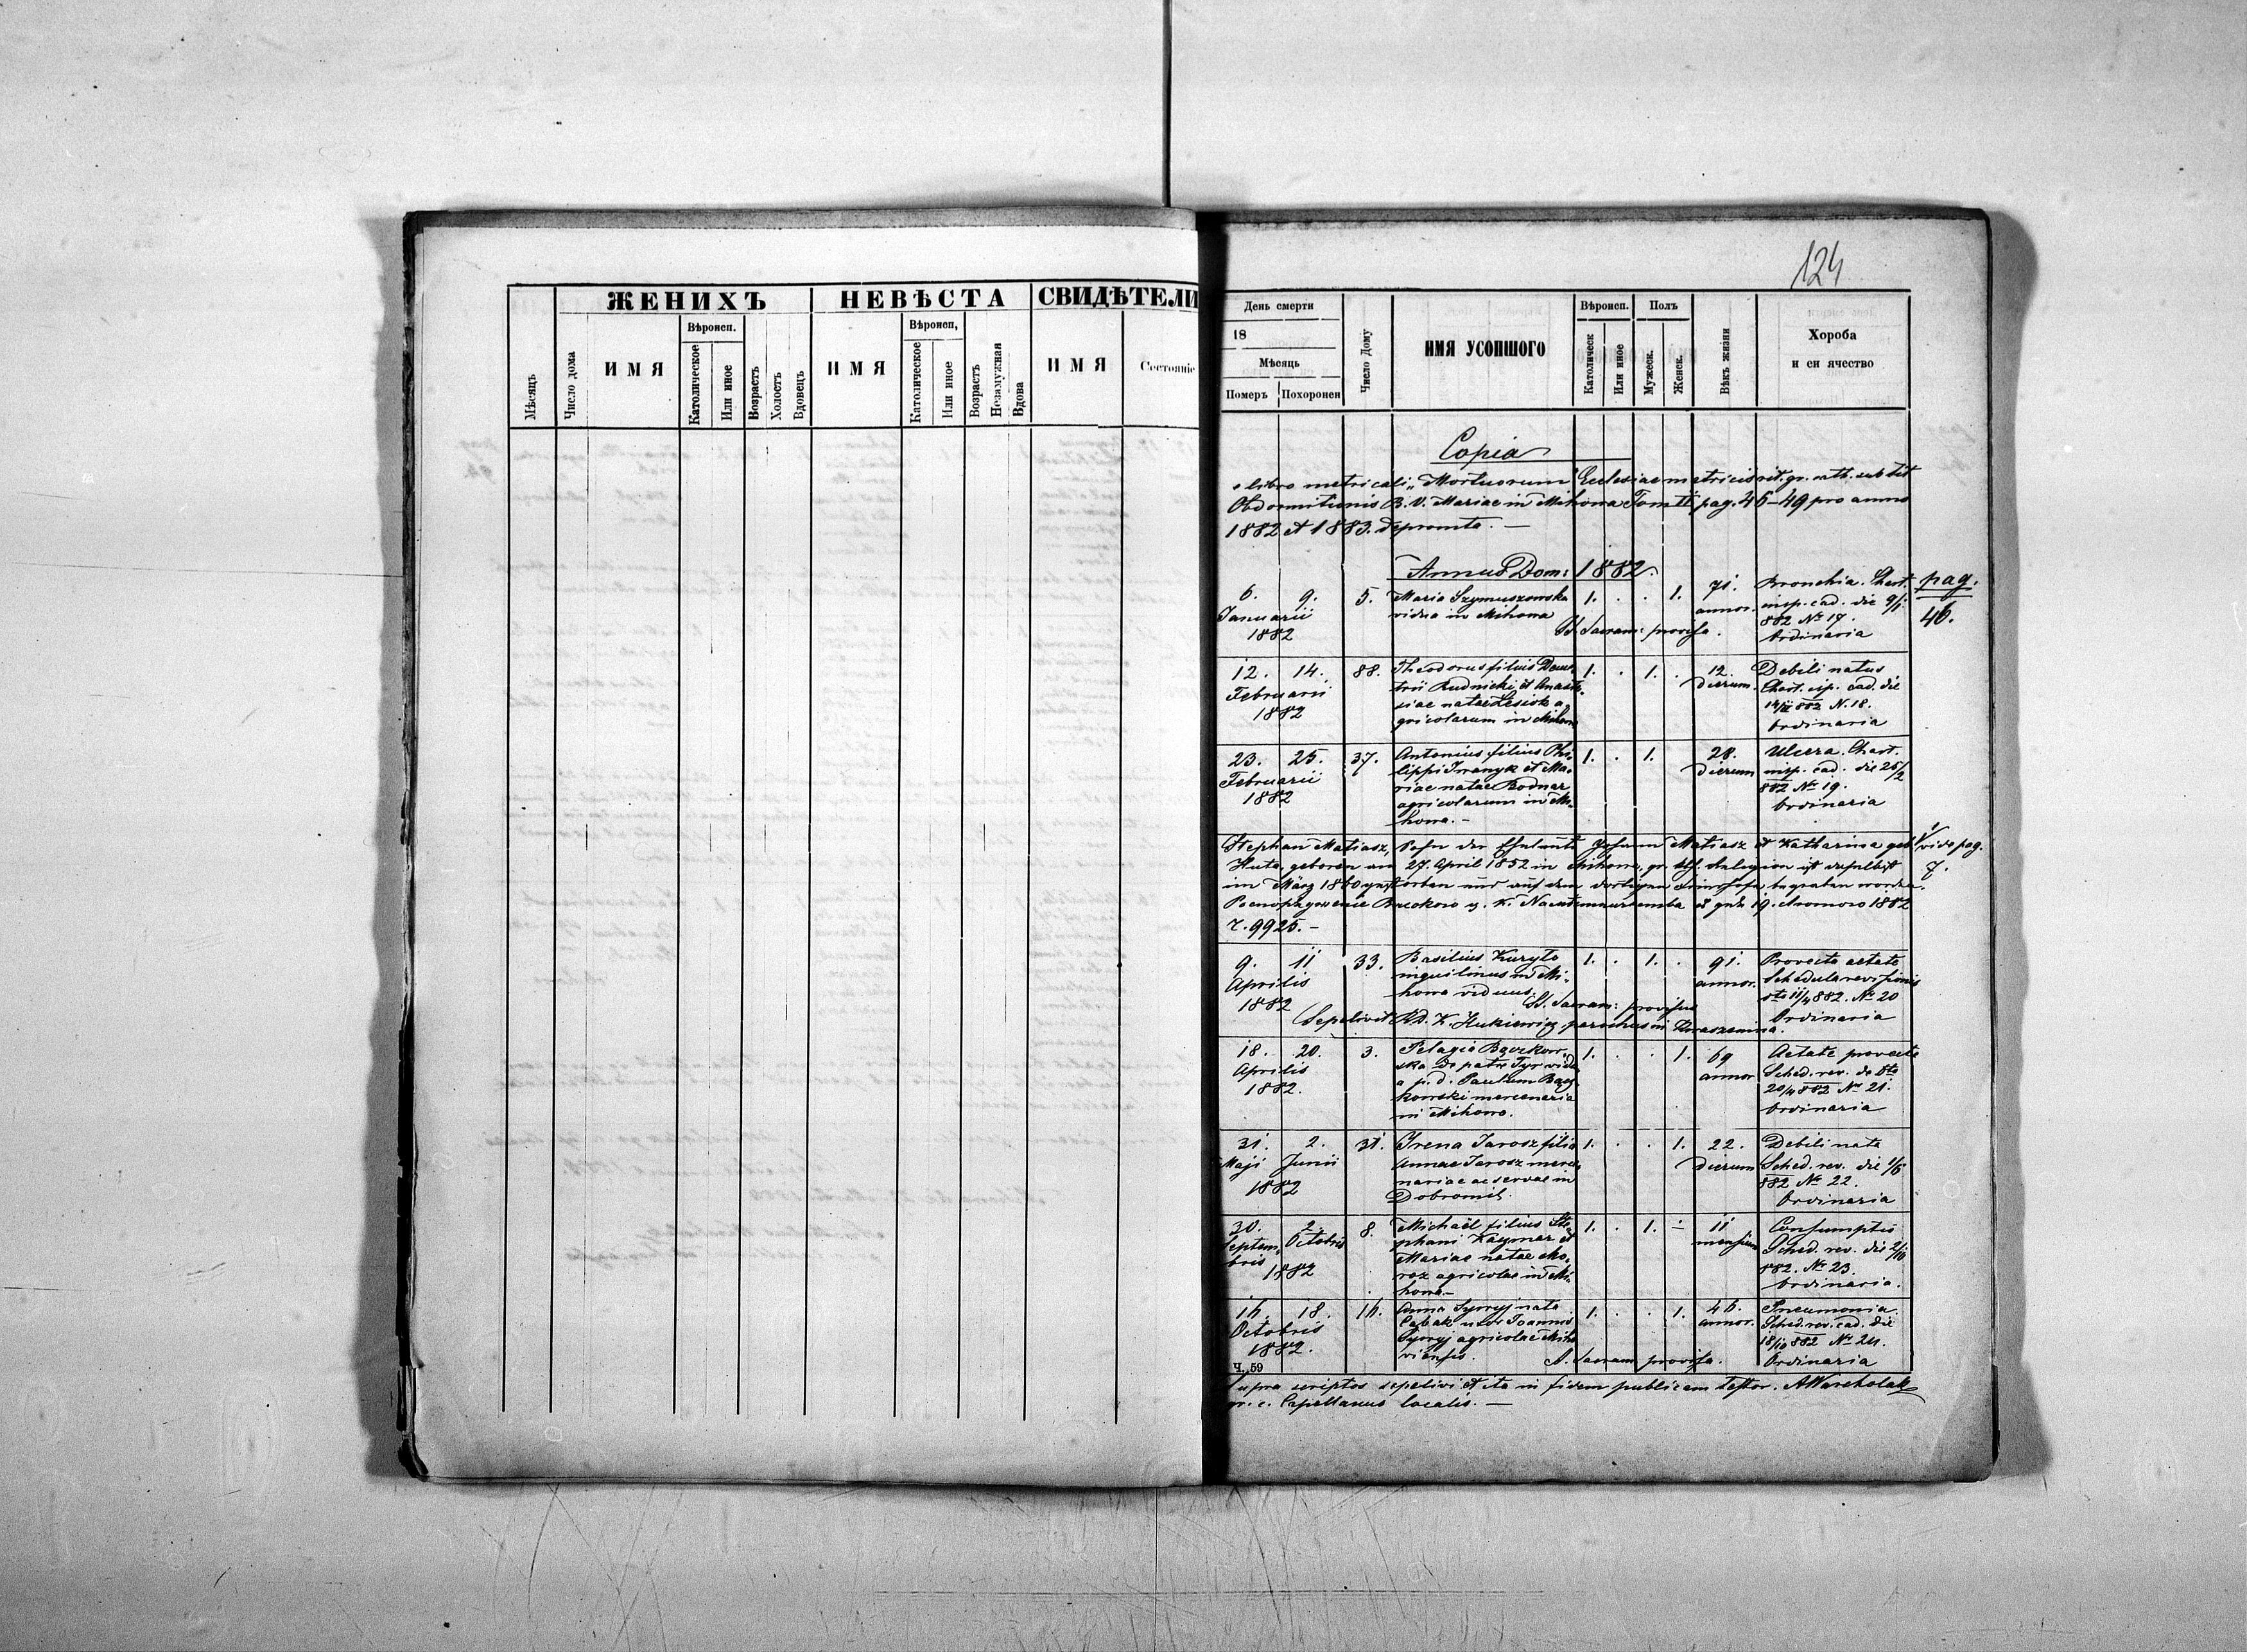 ЖЕНИХЪ
НЕВѢСТА
СВИДѢТЕЛИ
Мѣсяць
Число дома
ИМЯ
Вѣроисп.
Католическое
Или иное
Возрастъ
Холостъ
Вдовець
ИМЯ
Вѣроисп,
Католическое
Или иное
Возрастъ
Незамужная
Вдова
ИМЯ
Состояніе
124
День смерти
18
Мѣсяць
Померъ
Похоронен
Число Дому
ИМЯ УСОПШОГО
Вѣроисп.
Католическ
Или иное
Полъ
Мужеск.
Женск.
Вѣкъ жизни
Хороба
и єи ячество
Copia
e libro metricali „Mortuorum" Ecclesiae metricis rit. gr. cath. sub tit
Obdormitionis B. V. Mariae in Mihowa Tom II pag. 46–49 pro anno
1882 et 1883. depromta. —
Annus Dom: 1882.
6. 9. 5. Maria Szymuszowska 1. . . 1. 71. Bronchia. Chart. pag.
Januarii vidua in Mihowa annor. insp. cad. die 9/1 46.
1882 SS. Sacram: provisa. 882 No 17.
Ordinaria
12. 14. 88. Theodorus filius Deme- 1. . 1. . 12. Debili natus
Februarii trii Rudnicki et Anasta- dierum. Chart. isp. cad. die
1882 siae natae Lesiok a- 14/II 882 N. 18.
gricolarum in Mihowa Ordinaria
23. 25. 37. Antonius filius Phi- 1. . 1. 28. Ulcera. Chart.
Februarii lippi Iwanyk et Ma- dierum insp. cad. die 25/2
1882 riae natae Bodnar 882 No 19.
agricolarum in Mi- Ordinaria
howa. –
Stephan Matiasz, Sohn der Eheleute Johann Matiasz et Katharina geb. vide pag.
Huta geboren am 27. April 1852 in Mihowa, gr. kth. Religion ist daselbst 7.
im März 1860 gestorben und auf dem dortigen Friedhofe begraben worden.
19. 1882
Z. 9925. –
9. 11 33. Basilius Kuryło 1. . 1. . 91. Provecta aetate
Aprilis inquilinus in Mi- annor. Schedula revisionis
1882 howa viduus. SS. Sacram: provisus dto 11/4 882. No 20
Sepelivit Rd. K. Hukiewicz, parochus in Ordinaria
18. 20. 3. Pelagia Bączkow- 1. . . 1. 69 Aetate provecta
Aprilis ska de patre Tyr vidua annor Sched. rev. de dto
1882. a p. d. Paulum Bącz- 20/4 882 No 21.
kowski mercenaria Ordinaria
in Mihowa.
31. 2. 31. Irena Jarosz filia 1. . . 1. 22. Debili nata
Maji Junii Annae Jarosz merce- dierum Sched. rev. die 1/6
1882 nariae ac servae in 882 No 22.
Dobromil. Ordinaria
30. 2. 8. Michaël filius Ste- 1. . 1. – 11 Consumptio
Septem- Octobris phani Kaymar et mensium Sched. rev. die 2/10
bris Mariae natae Mo- 882. No 23.
1882 roz agricolae in Mi- Ordinaria.
howa. –
16. 18. 16. Anna Syvyj nata 1. . . 1. 46. Pneumonia.
Octobris Cabak uxor Joannis annor. Sched. rev. cad. die
1882. Syvyj agricolae Miho- 18/10 882 No 24.
viensis. S. Sacram provisa. Ordinaria
Ч. 59
Supra scriptos sepelivi et ita in fidem publicam testor. AWarcholak
gr. c. Capellanus localis. —